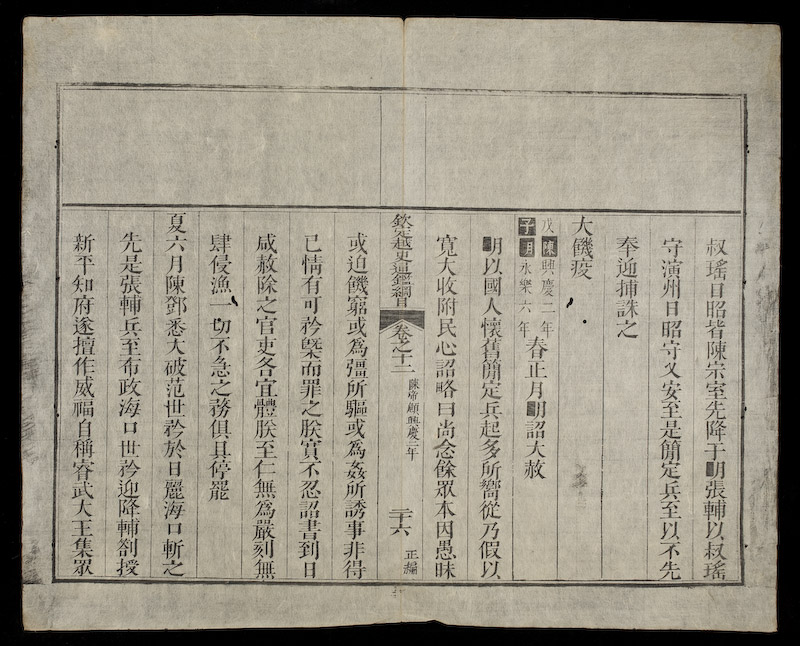 叔瑤日昭皆陳宗室先降于明張輔以叔瑤
守演州日昭守乂安至是簡定兵至以不先
奉迎捕誅之
大饑疫
戊子陳興慶二年明永樂六年春正月明詔大赦
明以國人懷舊簡定兵起多所嚮從乃假以
寬大收附民心詔略曰尚念餘眾本因愚昧
欽定越史通鑑綱目 卷之十二 陳帝顒興慶二年 二十六 正編
或迫饑窮或為彊所驅或為姦所誘事非得
已情有可矜槩而罪之朕實不忍詔書到日
咸赦除之官吏各宜體朕至仁無為嚴刻無
肆侵漁一切不急之務俱且停罷
夏六月陳鄧悉大破范世矜於日麗海口斬之
先是張輔兵至布政海口世矜迎降輔劄授
新平知府遂擅作威福自稱睿武大王集眾